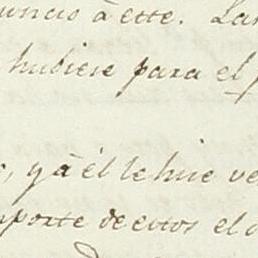 uncio à este. La
hubiese para el
, y à él le hice ve
mporte de estos el